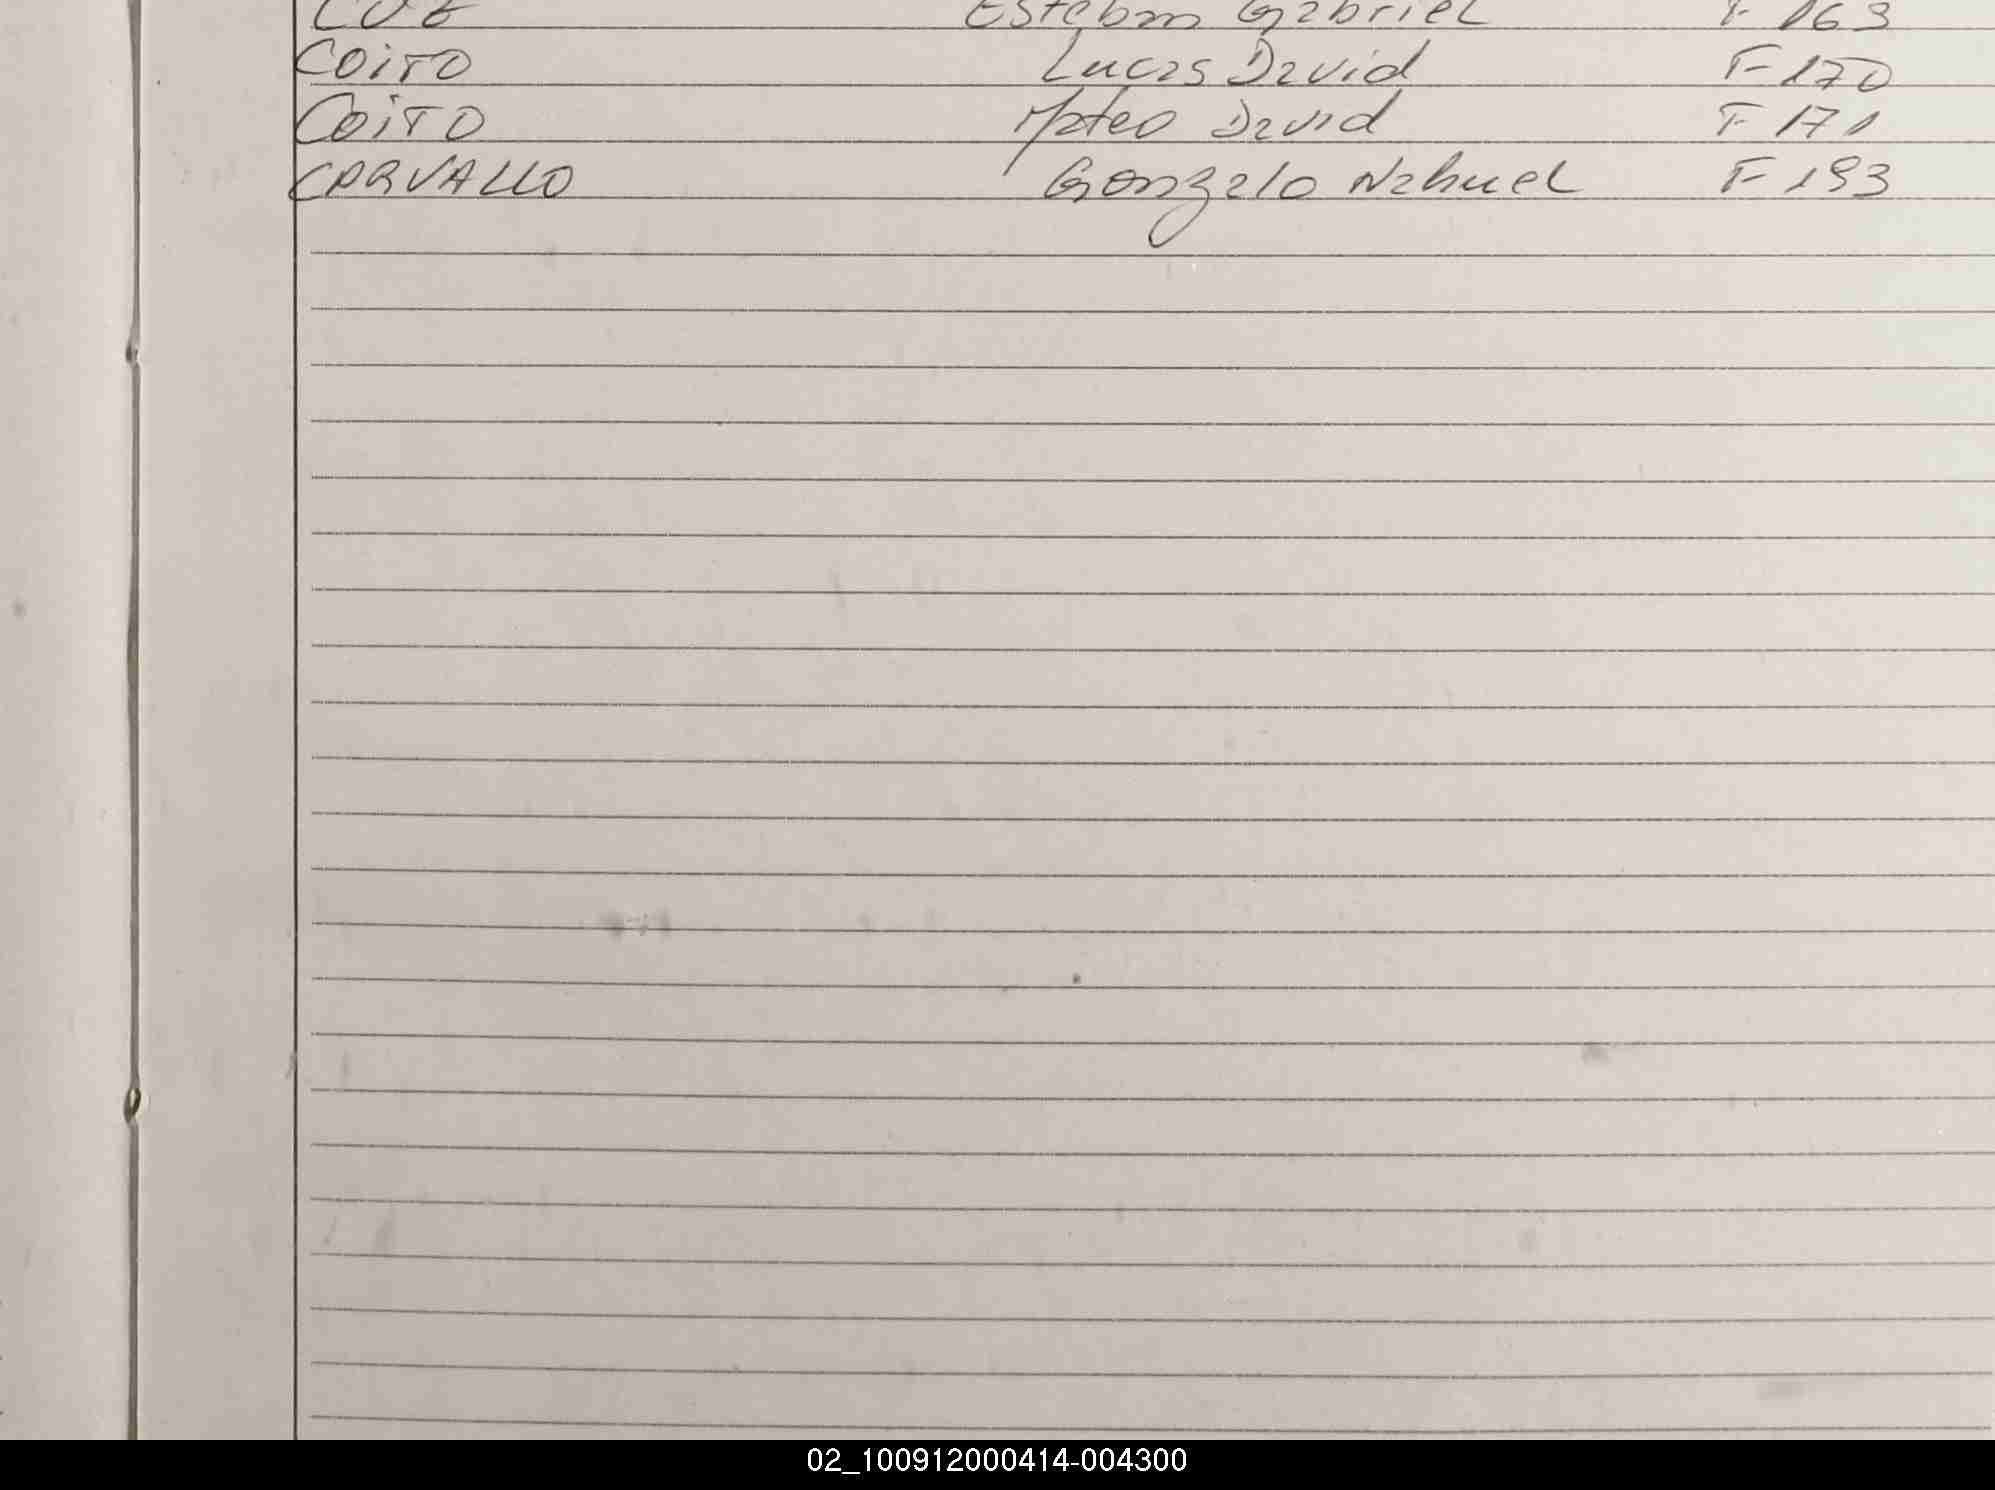 Esteban Gabriel F 163
COITO Lucas David F 170
COITO Mateo David F 171
CARVALLO Gonzalo Nahuel F 193
02_100912000414-004300